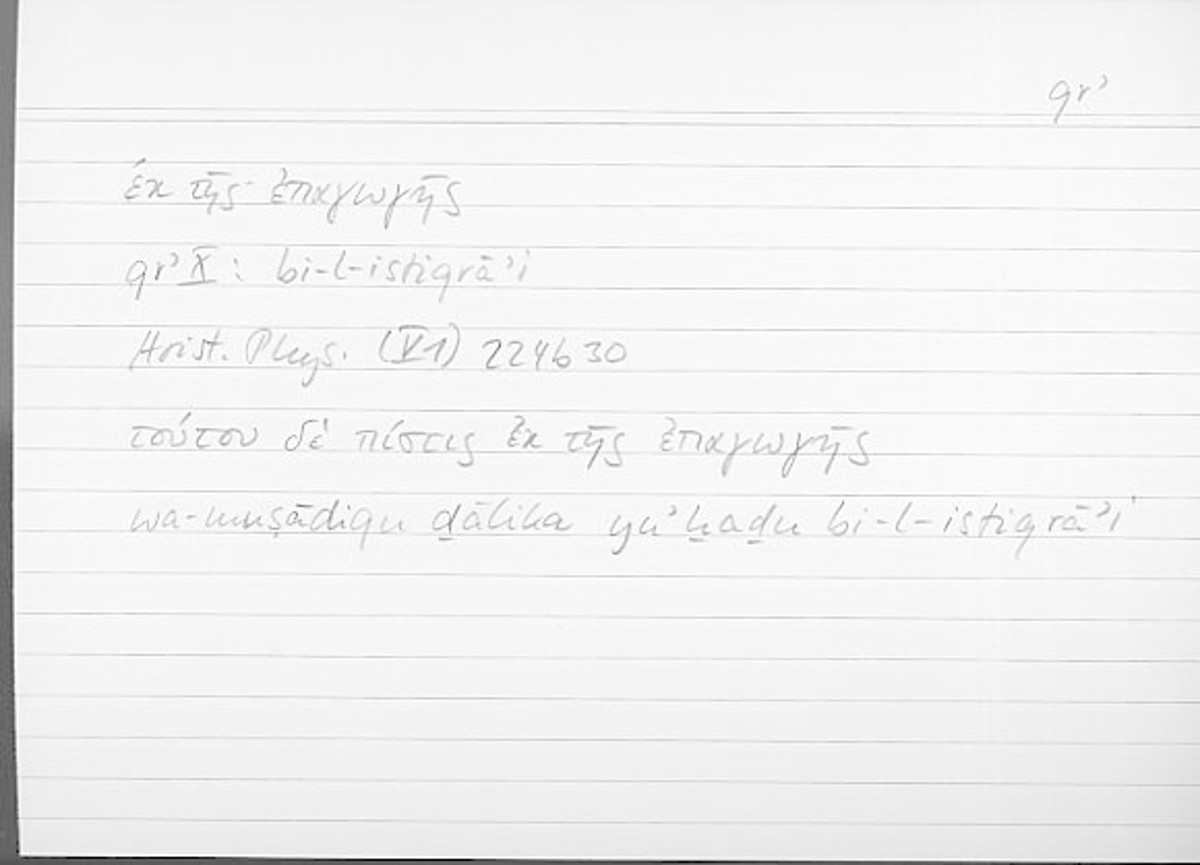 qrʾ
ἐκ τῆς ἐπαγωγῆς
qrʾ X : bi-l-istiqrāʾi
Arist. Phys. (V1) 224b30
τούτου δὲ πίστις ἐκ τῆς ἐπαγωγῆς
wa-muṣādiqu ḏālika yuʾḫaḏu bi-l-istiqrāʾi